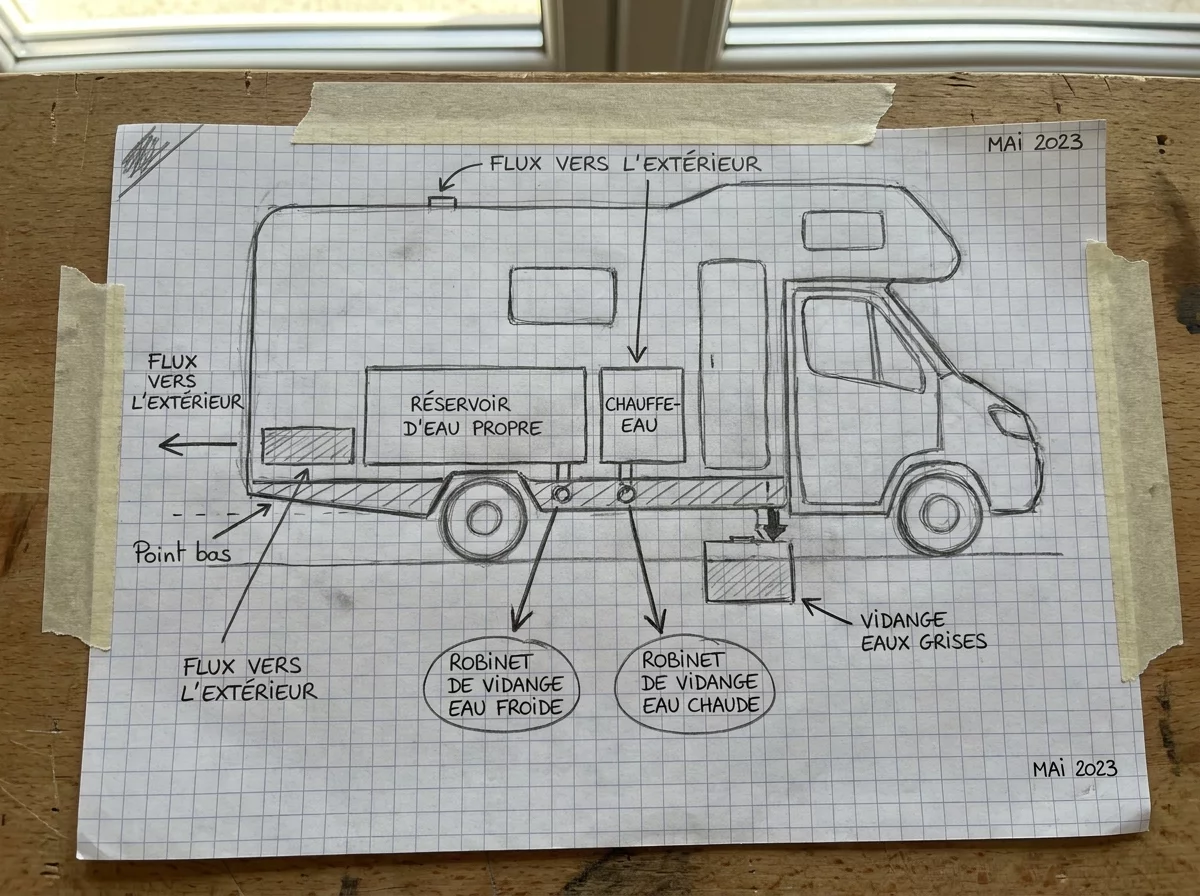 MAI 2023
FLUX VERS L'EXTÉRIEUR
FLUX
VERS
L'EXTÉRIEUR
RÉSERVOIR
D'EAU PROPRE
CHAUFFE-
EAU
Point bas
VIDANGE
EAUX GRISES
FLUX VERS
L'EXTÉRIEUR
ROBINET
DE VIDANGE
EAU FROIDE
ROBINET
DE VIDANGE
EAU CHAUDE
MAI 2023